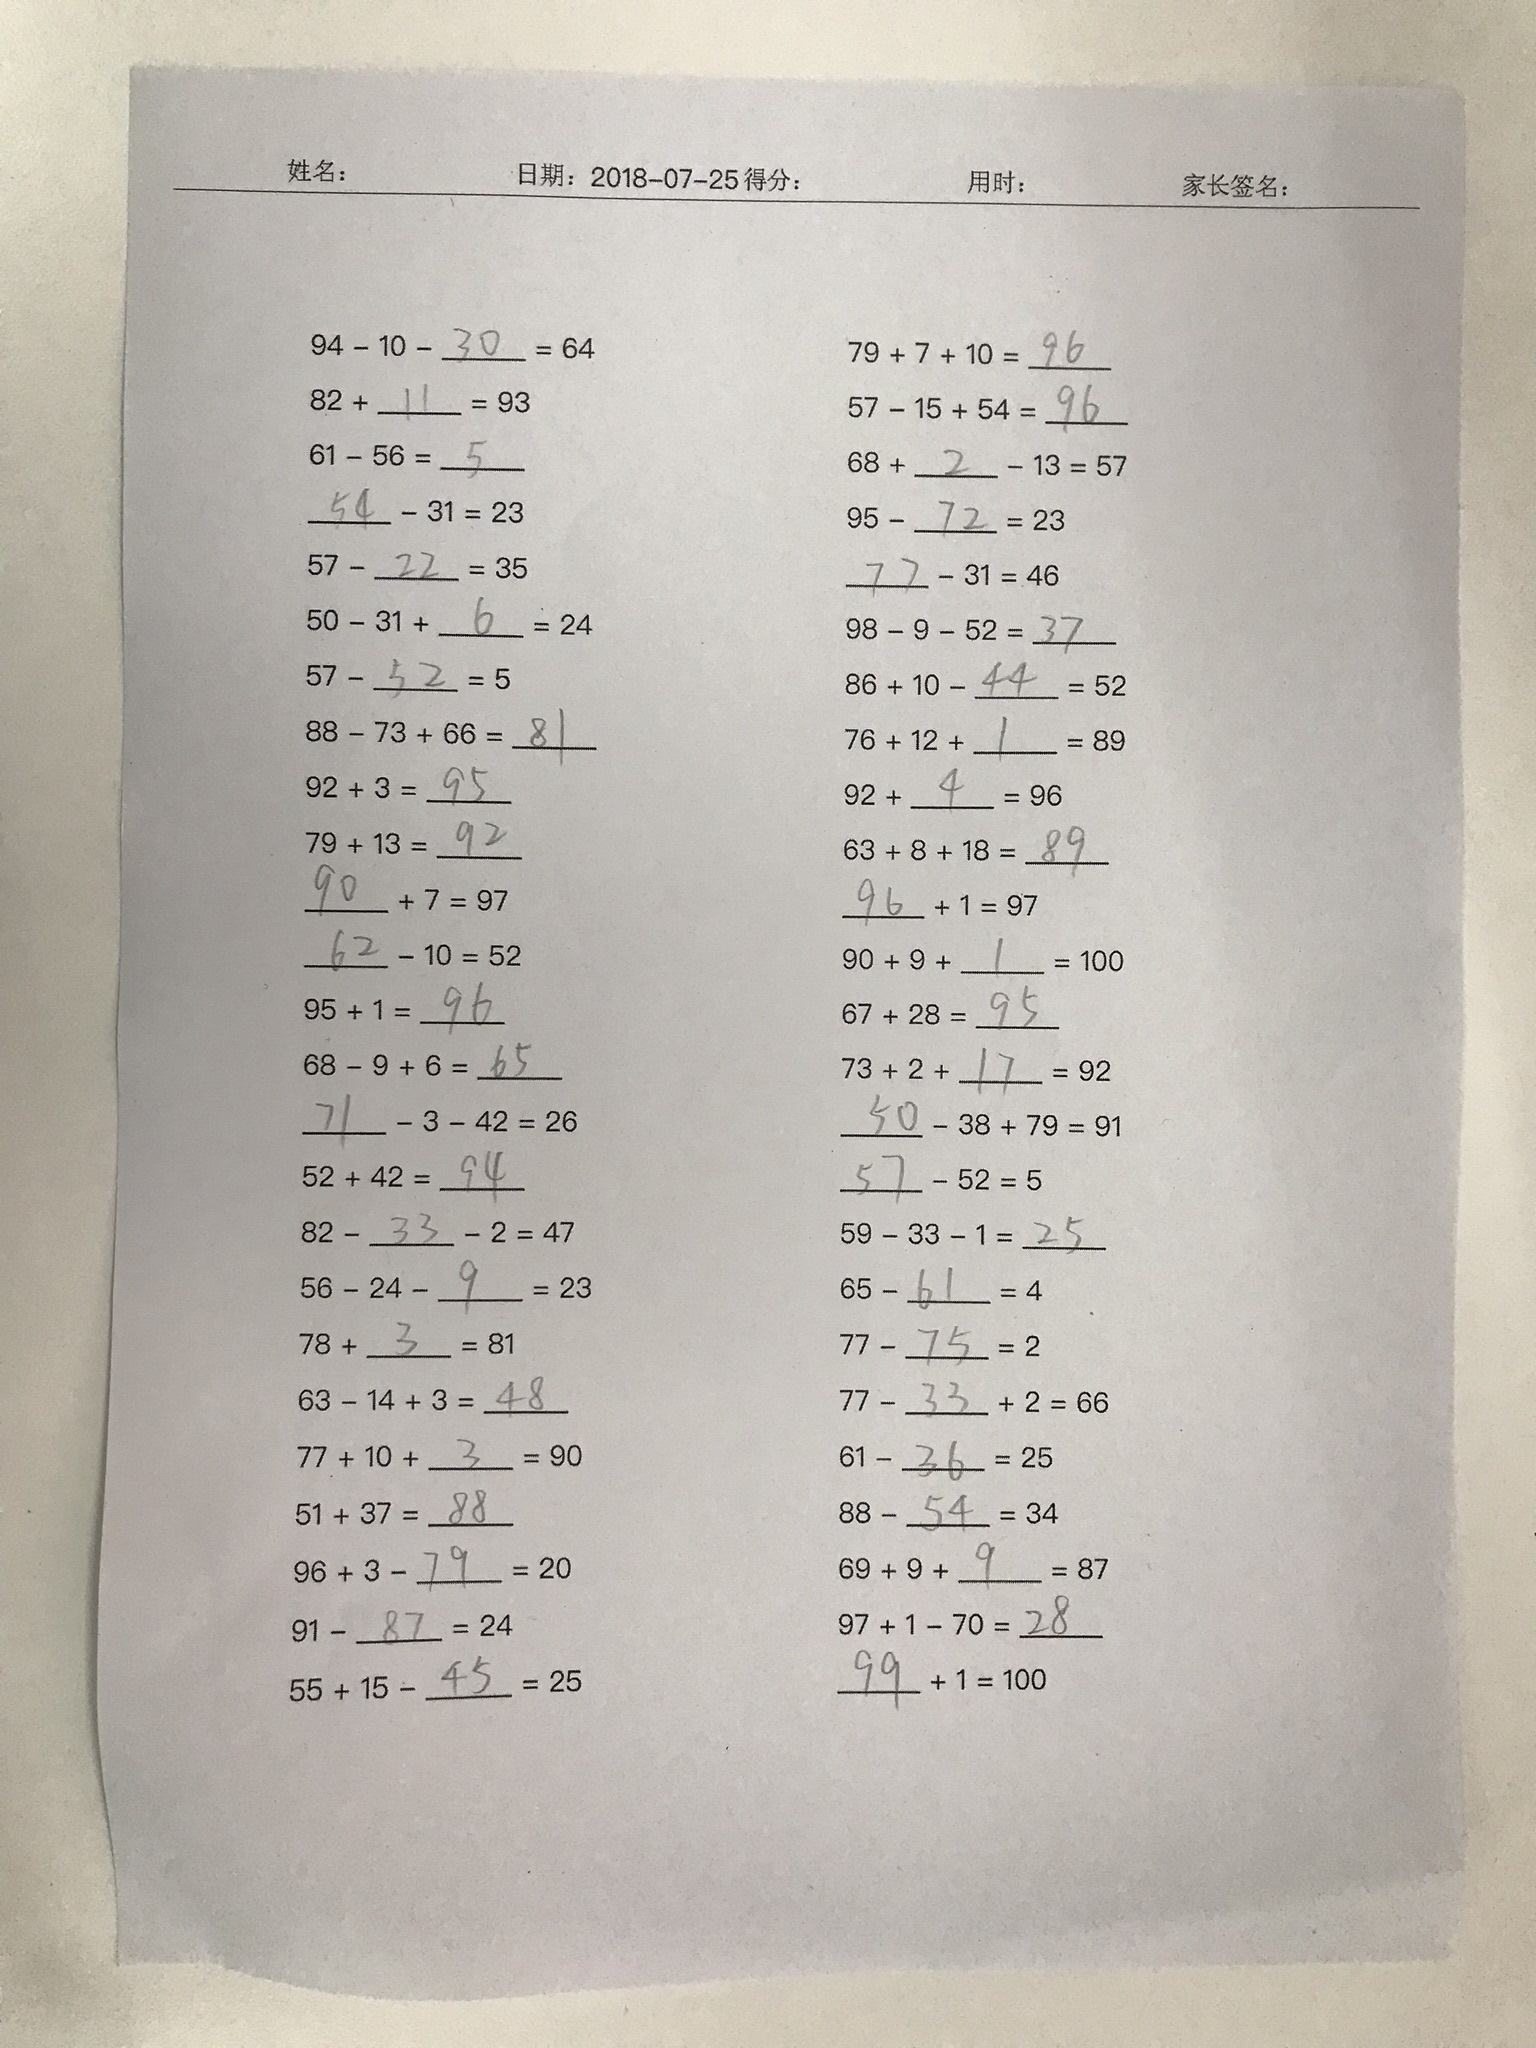 姓名： 日期：2018-07-25 得分： 用时： 家长签名：
94 - 10 - 30 = 64
82 + 11 = 93
61 - 56 = 5
54 - 31 = 23
57 - 22 = 35
50 - 31 + 6 = 24
57 - 52 = 5
88 - 73 + 66 = 81
92 + 3 = 95
79 + 13 = 92
90 + 7 = 97
62 - 10 = 52
95 + 1 = 96
68 - 9 + 6 = 65
71 - 3 - 42 = 26
52 + 42 = 94
82 - 33 - 2 = 47
56 - 24 - 9 = 23
78 + 3 = 81
63 - 14 + 3 = 48
77 + 10 + 3 = 90
51 + 37 = 88
96 + 3 - 79 = 20
91 - 87 = 24
55 + 15 - 45 = 25
79 + 7 + 10 = 96
57 - 15 + 54 = 96
68 + 2 - 13 = 57
95 - 72 = 23
77 - 31 = 46
98 - 9 - 52 = 37
86 + 10 - 44 = 52
76 + 12 + 1 = 89
92 + 4 = 96
63 + 8 + 18 = 89
96 + 1 = 97
90 + 9 + 1 = 100
67 + 28 = 95
73 + 2 + 17 = 92
50 - 38 + 79 = 91
57 - 52 = 5
59 - 33 - 1 = 25
65 - 61 = 4
77 - 75 = 2
77 - 33 + 2 = 66
61 - 36 = 25
88 - 54 = 34
69 + 9 + 9 = 87
97 + 1 - 70 = 28
99 + 1 = 100